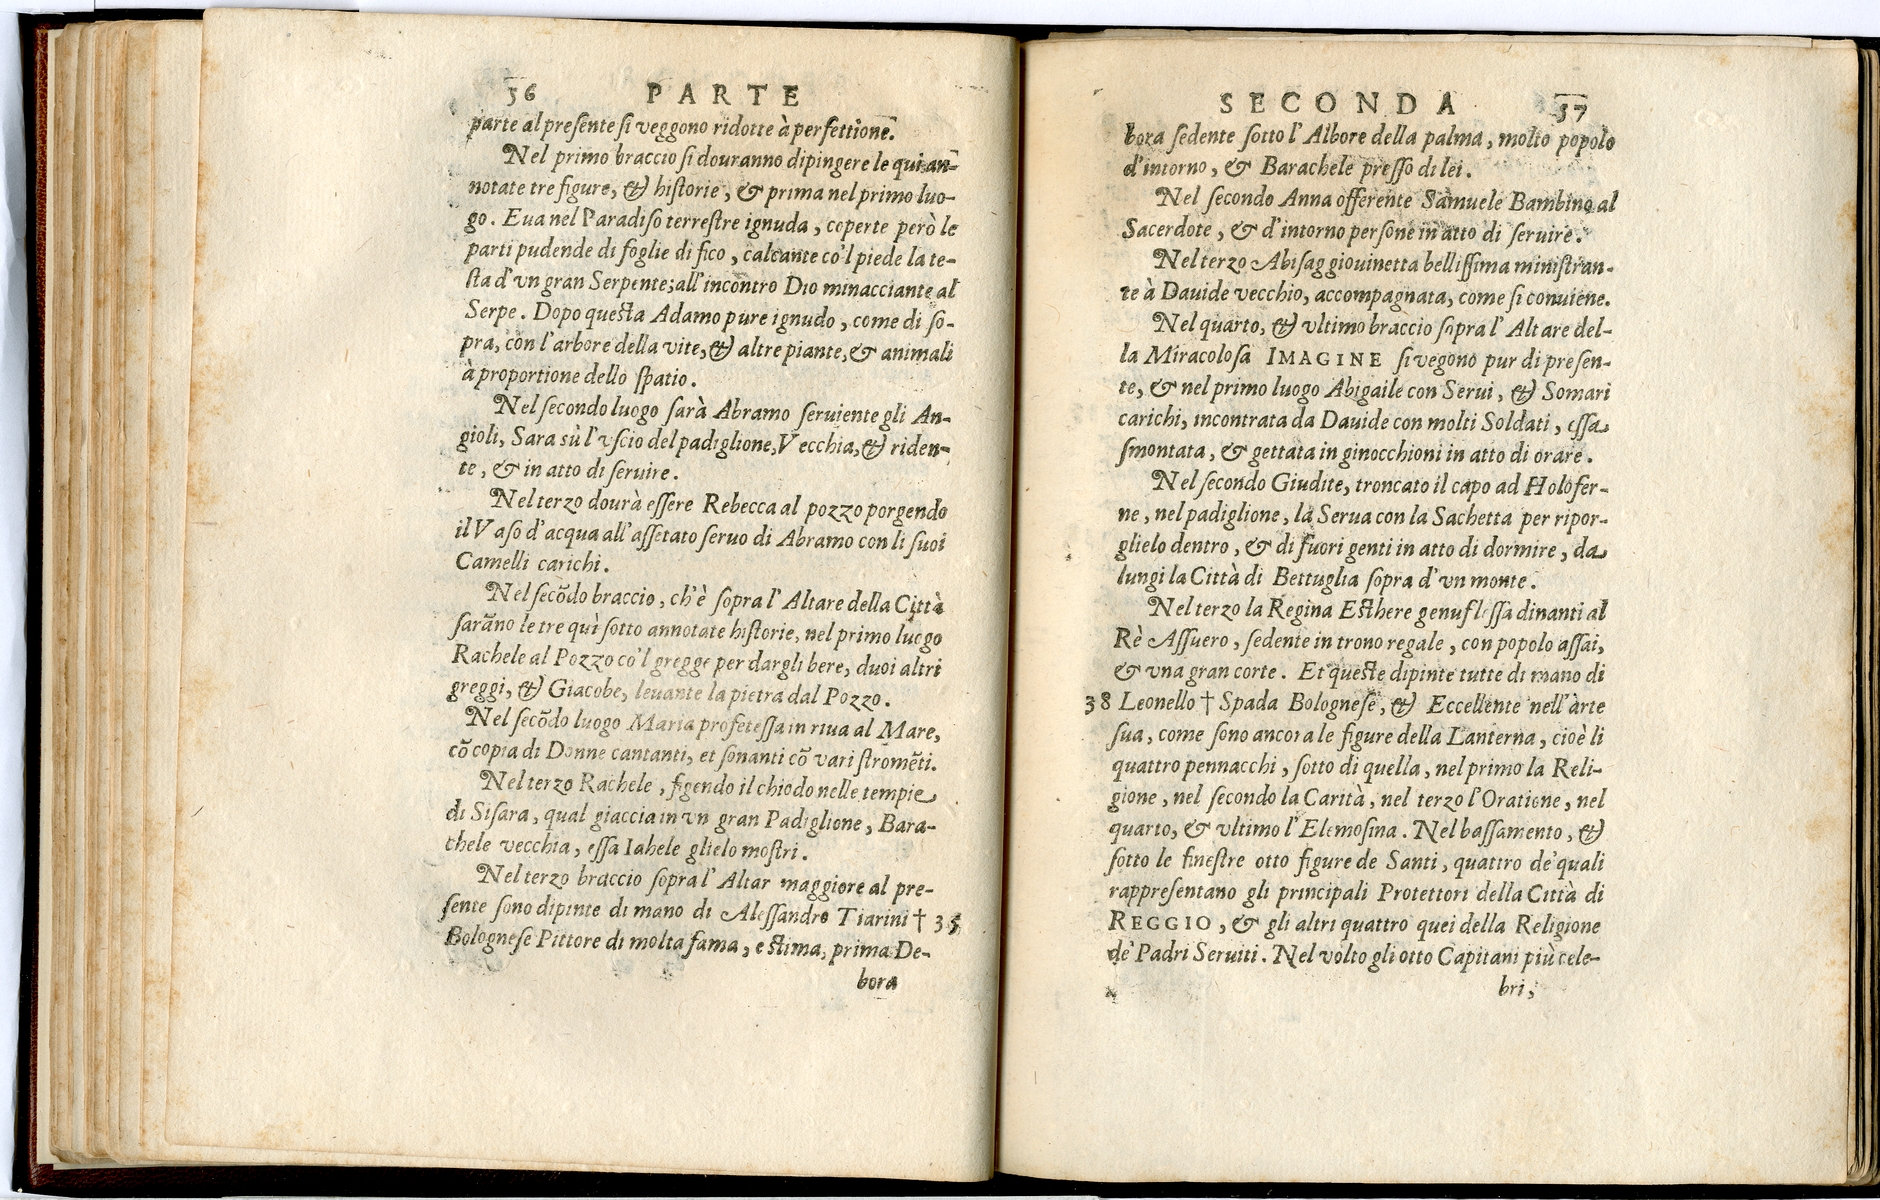 56 PARTE
parte al preſente ſi veggono ridotte à perfettione.
Nel primo braccio ſi douranno dipingere le qui an-
notate tre figure, & hiſtorie, & prima nel primo luo-
go. Eua nel Paradiſo terreſtre ignuda, coperte però le
parti pudende di foglie di fico, calcante co'l piede la te-
ſta d'vn gran Serpente; all'incontro Dio minacciante al
Serpe. Dopo queſta Adamo pure ignudo, come di ſo-
pra, con l'arbore della vite, & altre piante, & animali
à proportione dello ſpatio.
Nel ſecondo luogo ſarà Abramo ſeruiente gli An-
gioli, Sara sù l'vſcio del padiglione, Vecchia, & riden-
te, & in atto di ſeruire.
Nel terzo dourà eſſere Rebecca al pozzo porgendo
il Vaſo d'acqua all'aſſetato ſeruo di Abramo con li ſuoi
Camelli carichi.
Nel ſecõdo braccio, ch'è ſopra l'Altare della Città
ſarãno le tre quì ſotto annotate hiſtorie, nel primo luogo
Rachele al Pozzo co'l gregge per dargli bere, duoi altri
greggi, & Giacobe, leuante la pietra dal Pozzo.
Nel ſecõdo luogo Maria profeteſſa in riua al Mare,
cõ copia di Donne cantanti, et ſonanti cõ vari ſtromẽti.
Nel terzo Rachele, figendo il chiodo nelle tempie
di Siſara, qual giaccia in vn gran Padiglione, Bara-
chele vecchia, eſſa Iahele glielo moſtri.
Nel terzo braccio ſopra l'Altar maggiore al pre-
ſente ſono dipinte di mano di Aleſſandro Tiarini † 35
Bologneſe Pittore di molta fama, e ſtima, prima De-
bora
SECONDA 57
bora ſedente ſotto l'Albore della palma, molto popolo
d'intorno, & Barachele preſſo di lei.
Nel ſecondo Anna offerente Samuele Bambino al
Sacerdote, & d'intorno perſone in atto di ſeruire.
Nel terzo Abiſag giouinetta belliſſima miniſtran-
te à Dauide vecchio, accompagnata, come ſi conuiene.
Nel quarto, & vltimo braccio ſopra l'Altare del-
la Miracoloſa IMAGINE ſi vegono pur di preſen-
te, & nel primo luogo Abigaile con Serui, & Somari
carichi, incontrata da Dauide con molti Soldati, eſſa
ſmontata, & gettata in ginocchioni in atto di orare.
Nel ſecondo Giudite, troncato il capo ad Holofer-
ne, nel padiglione, la Serua con la Sachetta per ripor-
glielo dentro, & di fuori genti in atto di dormire, da
lungi la Città di Bettuglia ſopra d'vn monte.
Nel terzo la Regina Eſthere genufleſſa dinanti al
Rè Aſſuero, ſedente in trono regale, con popolo aſſai,
& vna gran corte. Et queſte dipinte tutte di mano di
38 Leonello † Spada Bologneſe, & Eccellente nell'àrte
ſua, come ſono ancora le figure della Lanterna, cioè li
quattro pennacchi, ſotto di quella, nel primo la Reli-
gione, nel ſecondo la Carità, nel terzo l'Oratione, nel
quarto, & vltimo l'Elemoſina. Nel baſſamento, &
ſotto le fineſtre otto figure de Santi, quattro de'quali
rappreſentano gli principali Protettori della Città di
REGGIO, & gli altri quattro quei della Religione
de'Padri Seruiti. Nel volto gli otto Capitani più cele-
bri,